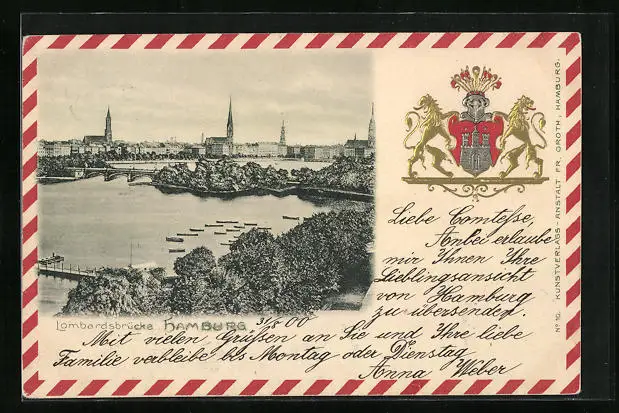 Liebe Comtesse,
Anbei erlaube
mir Ihnen Ihre
Lieblingsansicht
von Hamburg
zu übersenden.
Lombardsbrücke HAMBURG 31/5 00
Mit vielen Grüssen an Sie und Ihre liebe
Familie verbleibe bis Montag oder Dienstag
Anna Weber
No 10. KUNSTVERLAGS-ANSTALT FR. GROTH, HAMBURG.